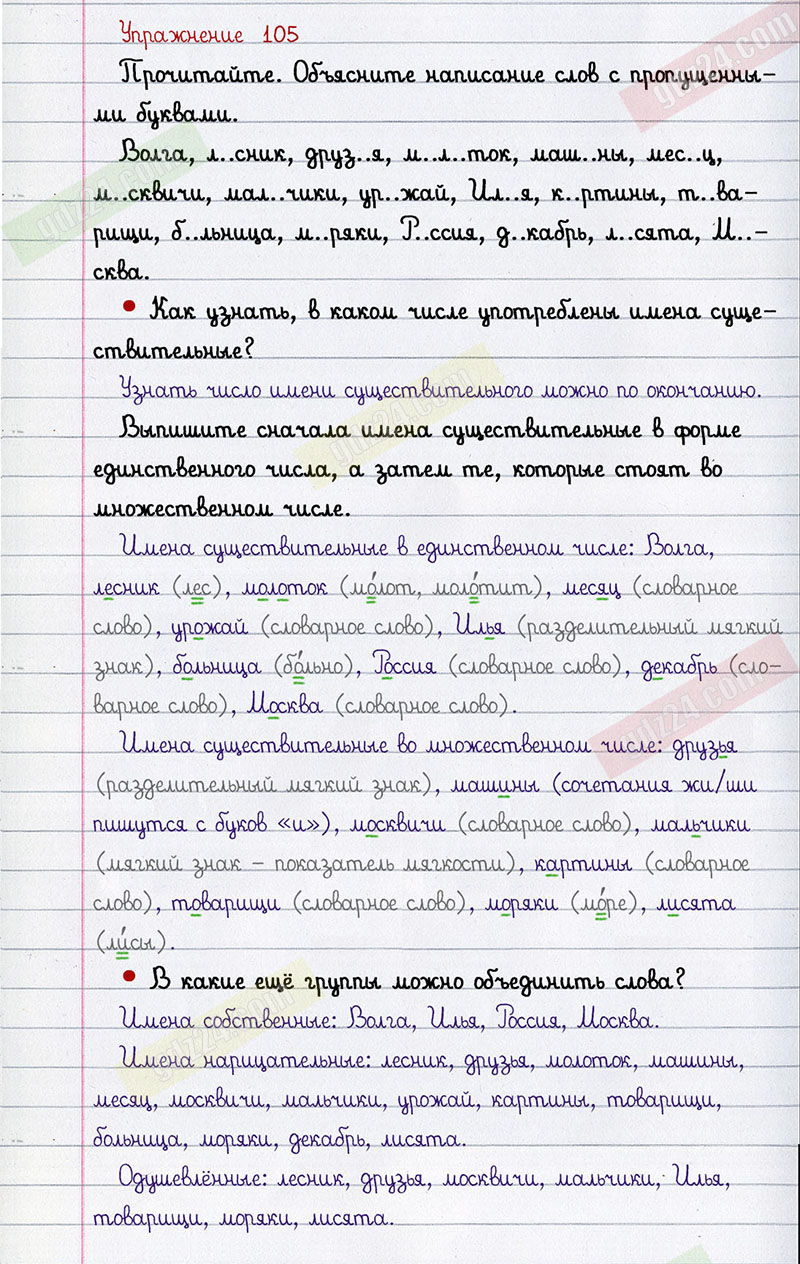 Упражнение 105
Прочитайте. Объясните написание слов с пропущенны-
ми буквами.
Волга, л..сник, друз..я, м..л..ток, маш..ны, мес..ц,
м..сквичи, мал..чики, ур..жай, Ил..я, к..ртины, т..ва-
рищи, б..льница, м..ряки, Р..ссия, д..кабрь, л..сята, М..-
сква.
• Как узнать, в каком числе употреблены имена суще-
ствительные?
Узнать число имени существительного можно по окончанию.
Выпишите сначала имена существительные в форме
единственного числа, а затем те, которые стоят во
множественном числе.
Имена существительные в единственном числе: Волга,
лесник (лес), молоток (мо́лот, моло́тит), месяц (словарное
слово), урожай (словарное слово), Илья (разделительный мягкий
знак), больница (бо́льно), Россия (словарное слово), декабрь (сло-
варное слово), Москва (словарное слово).
Имена существительные во множественном числе: друзья
(разделительный мягкий знак), машины (сочетания жи/ши
пишутся с буков «и»), москвичи (словарное слово), мальчики
(мягкий знак – показатель мягкости), картины (словарное
слово), товарищи (словарное слово), моряки (мо́ре), лисята
(ли́сы).
• В какие ещё группы можно объединить слова?
Имена собственные: Волга, Илья, Россия, Москва.
Имена нарицательные: лесник, друзья, молоток, машины,
месяц, москвичи, мальчики, урожай, картины, товарищи,
больница, моряки, декабрь, лисята.
Одушевлённые: лесник, друзья, москвичи, мальчики, Илья,
товарищи, моряки, лисята.
gdz24.com
gdz24.com
gdz24.com
gdz24.com
gdz24.com